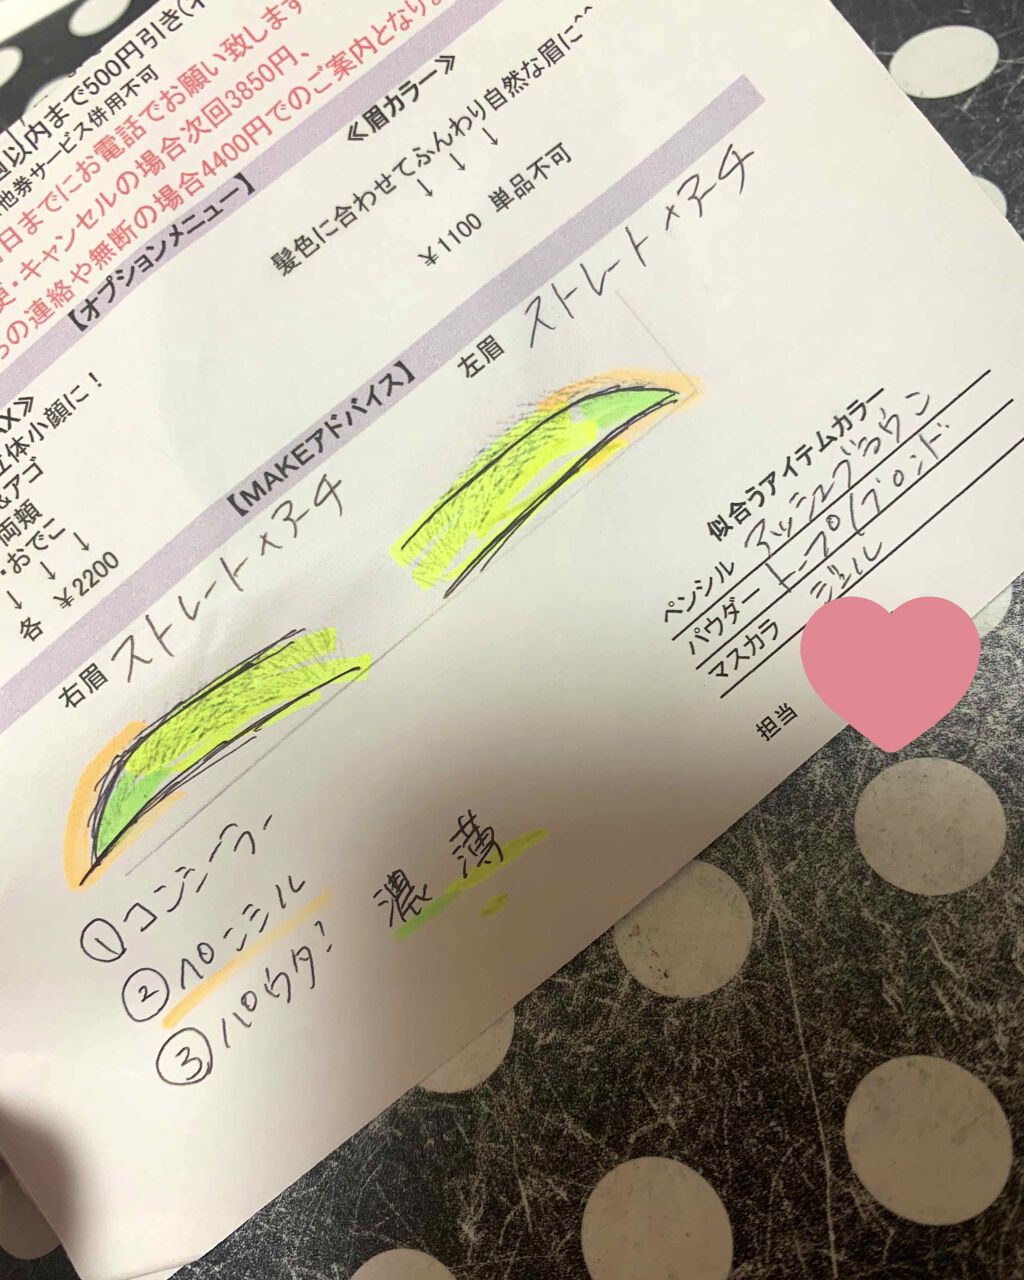 週以内まで500円引き
他券サービス併用不可
日までにお電話でお願い致します
更・キャンセルの場合次回3850円、
の連絡や無断の場合4400円でのご案内となりま
【オプションメニュー】
《眉カラー》
髪色に合わせてふんわり自然な眉に^^
↓ ↓ ↓
¥1100 単品不可
X》
立体小顔に!
&アゴ
両頬
・おでこ
↓ ↓ ↓
各 ¥2200
【MAKEアドバイス】
右眉 ストレート×アーチ
左眉 ストレート×アーチ
似合うアイテムカラー
ペンシル アッシュブラウン
パウダー トープ/ブロンド
マスカラ
担当
①コンシーラー
②ペンシル
③パウダー
濃 薄